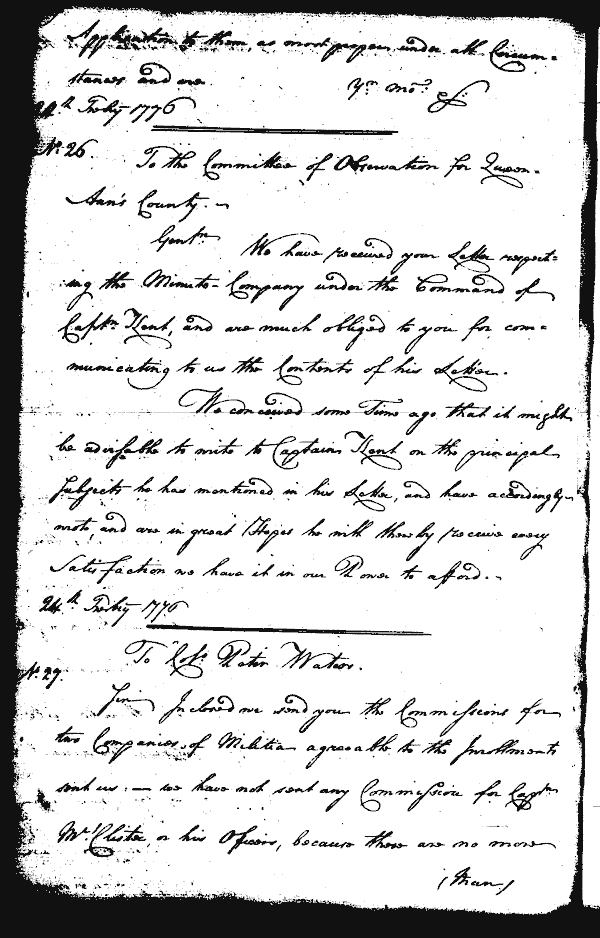 Application to them as most proper under all Circum-
stances and are Yr. Mo. &c.
24th Febry 1776
No. 26. To the Committee of Observation for Queen-
Ann's County. -
Gentn. We have received your Letter respect-
ing the Minute-Company under the Command of
Captn. Kent, and are much obliged to you for com-
municating to us the Contents of his Letter.
We conceived some Time ago that it might
be advisable to write to Captain Kent on the principal
Subjects he has mentioned in his Letter, and have accordingly-
wrote, and are in great Hopes he will thereby receive every
Satisfaction we have it in our Power to afford. -
24th Febry 1776
No. 27. To Colo. Peter Waters.
Sir Inclosed we send you the Commissions for
two Companies of Militia agreeable to the Inrollments
sent us: — we have not sent any Commission for Captn.
McClister, or his Officers, because there are no more
(than)